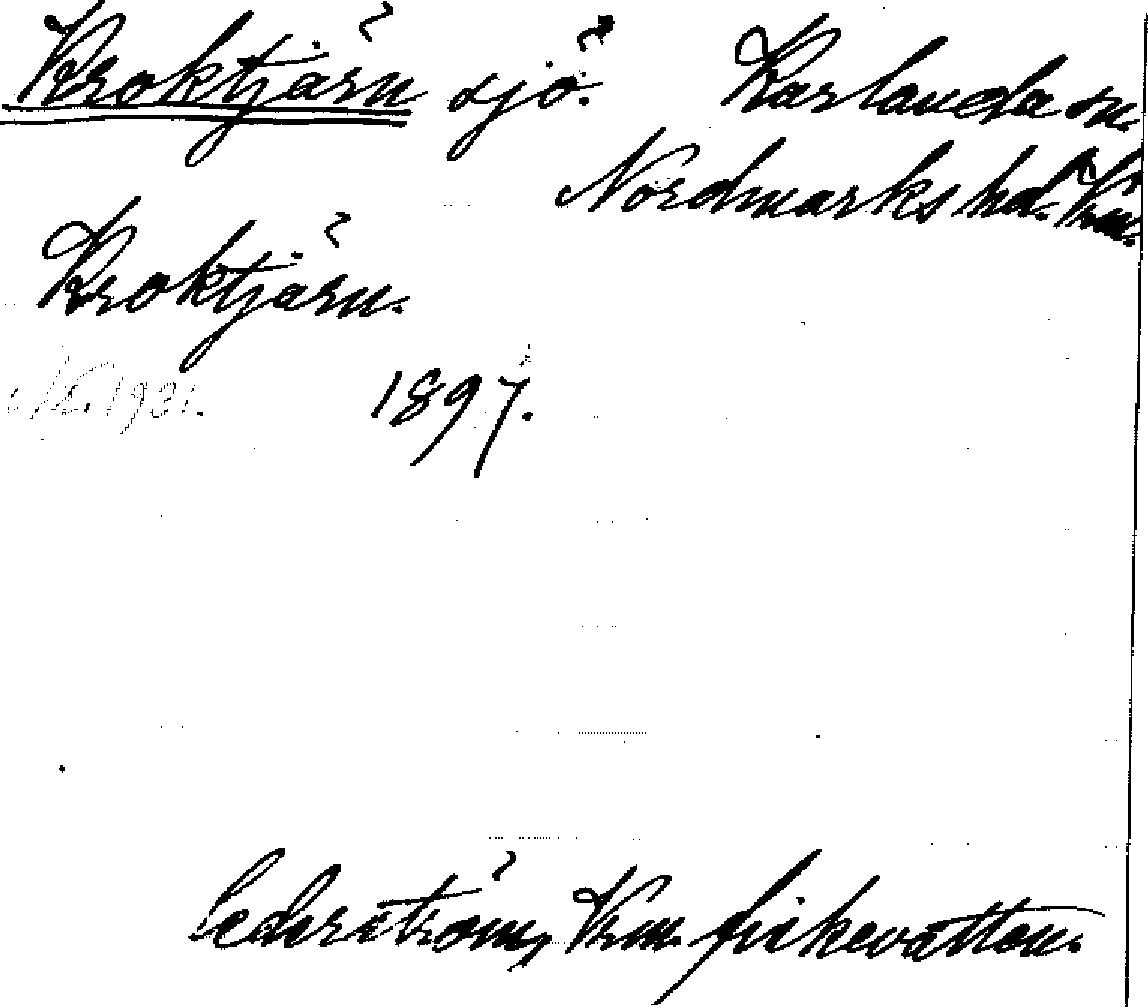 Kroktjärn sjö. Karlanda sn.
Nordmarks hd. Vrm.
Kroktjärn.
1897.
Cederström, Vrm. fiskevatten.